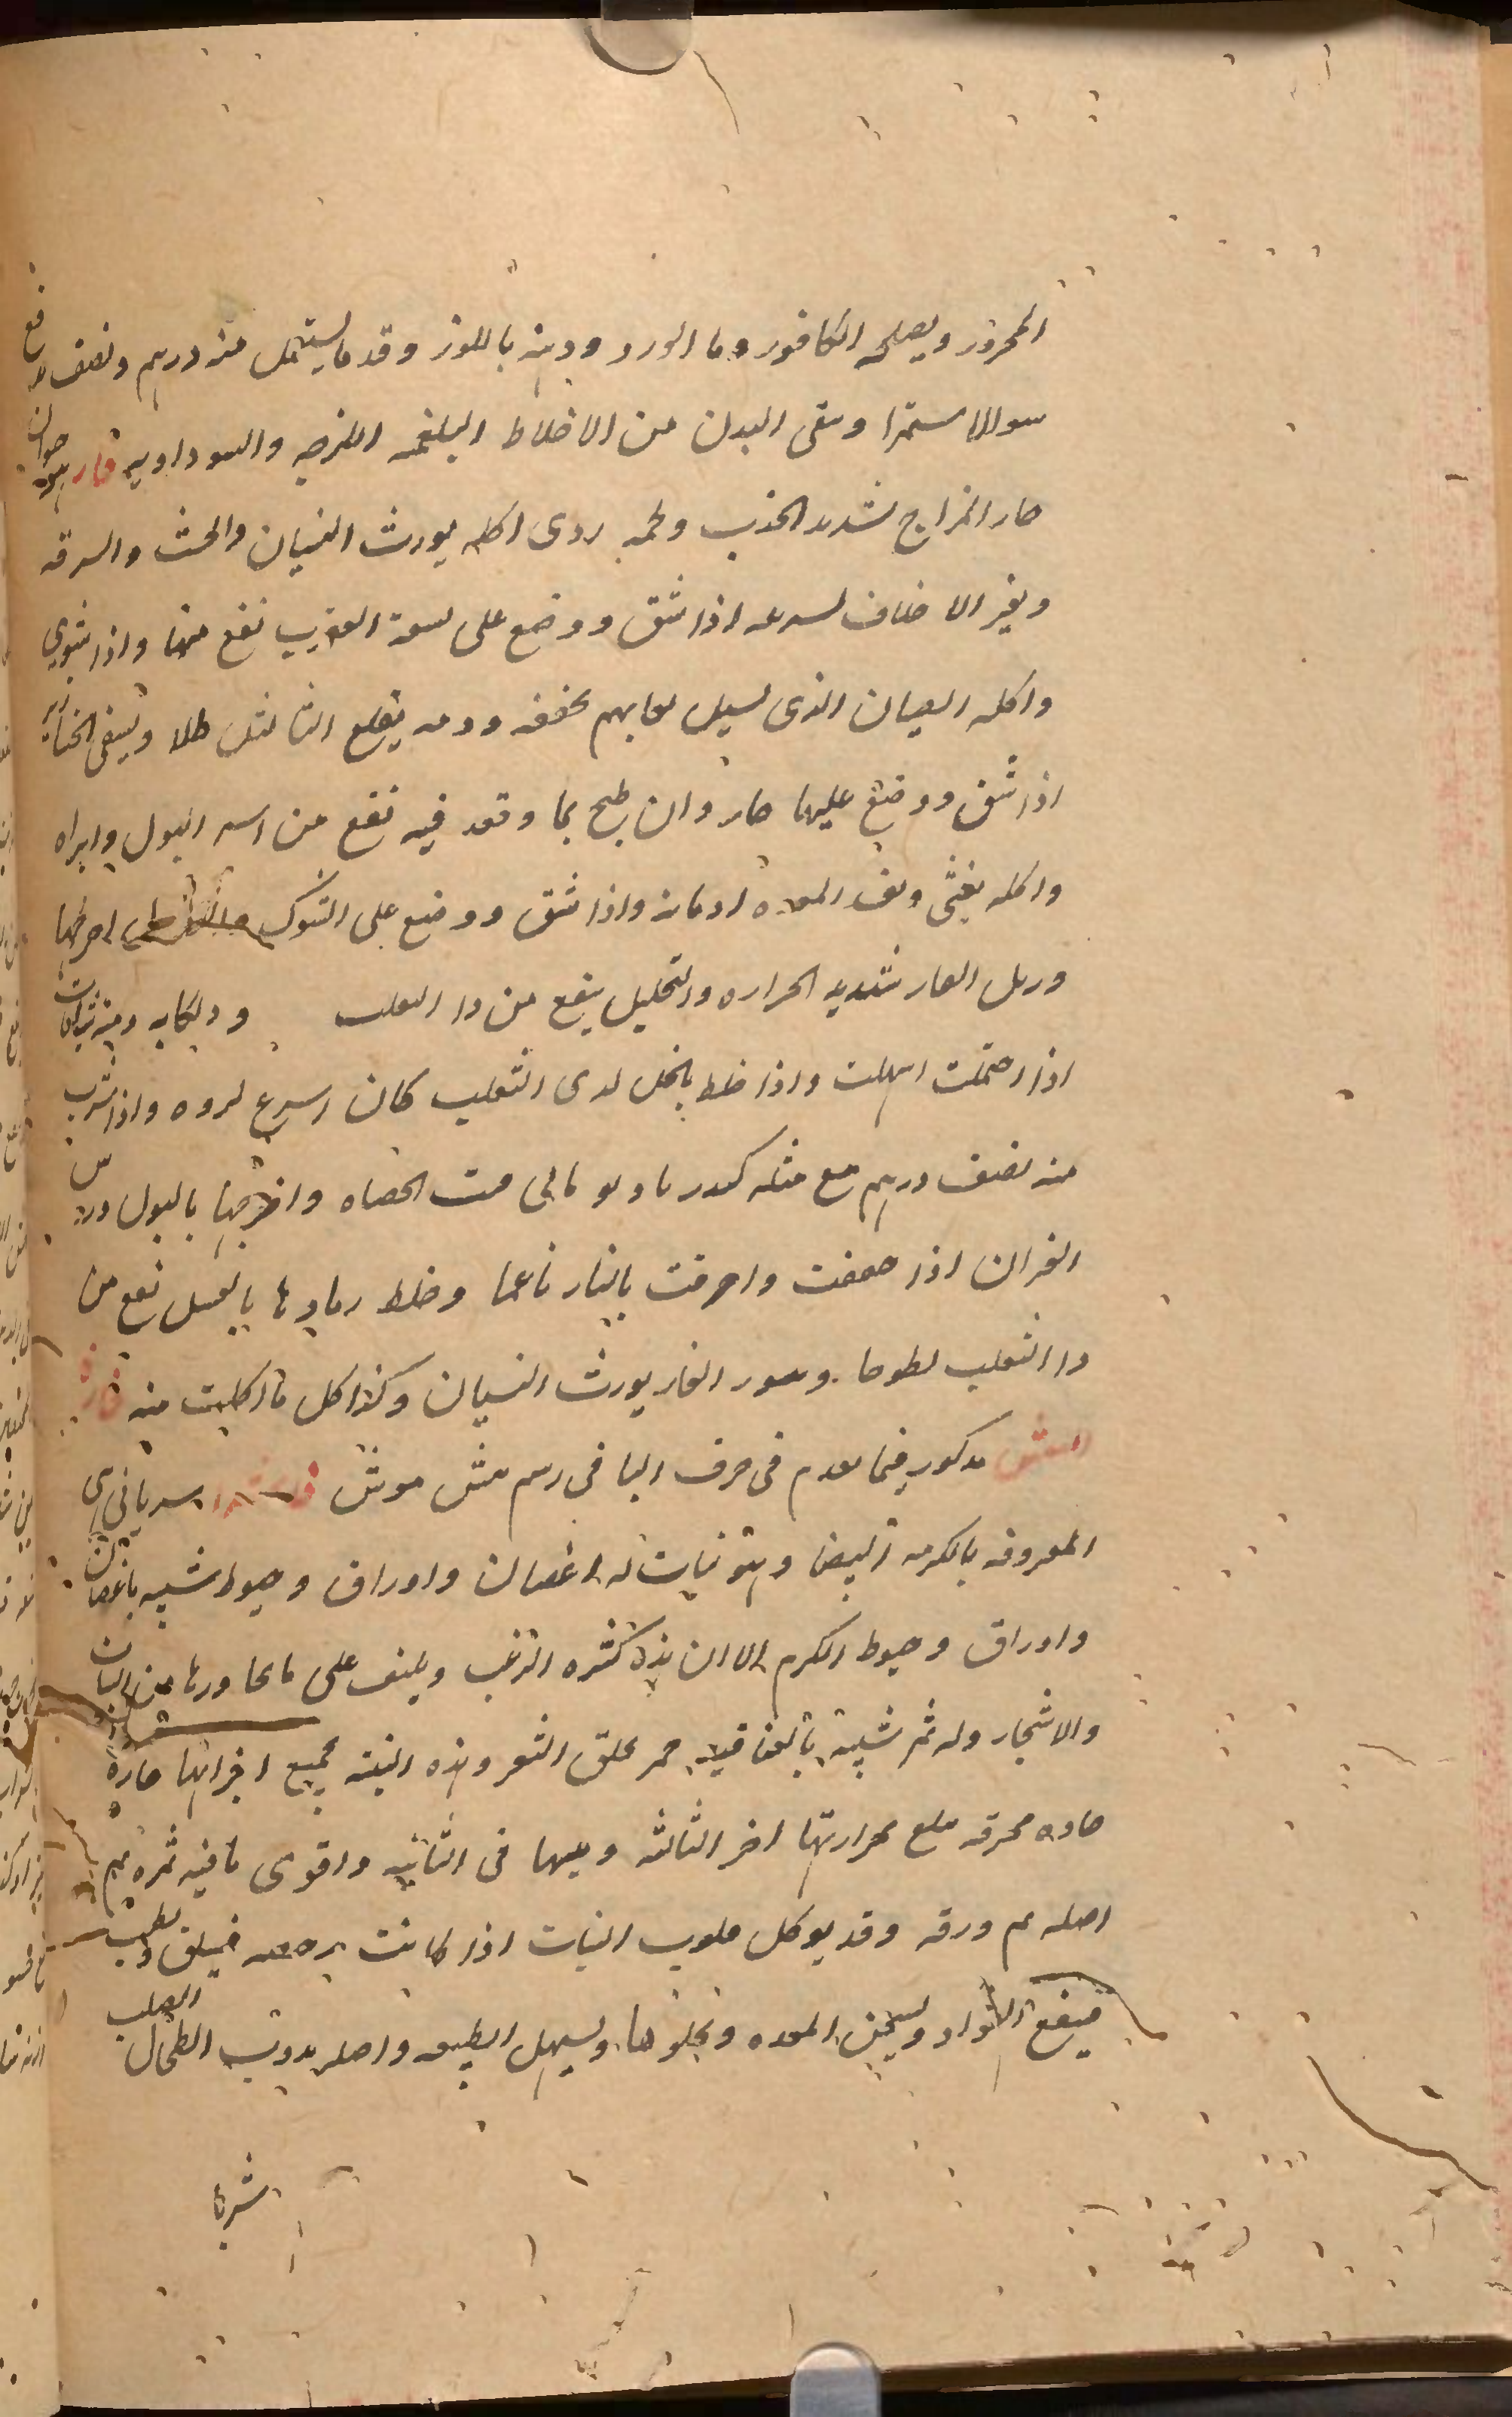 المحرور ويصلحه الكافور وما الورد ودهنه باللوز وقد ما يستعمل منه درهم ونصف
سوالاستمرا وينقى البدن من الاخلاط البلغميه اللزجه والسوداويه فار هو حيوان
حار المزاج شديد الجذب ولحمه ردى اكله يورث النسيان والخبث والسرقه
ويغير الاخلاق لسرعه اذا شق ووضع على لسعة العقرب نفع منها واذا شوي
واكله الصبيان الذى يسيل لعابهم يجففه ودمه يقلع الثاليل طلا ويشفى الخنازير
اذا شق ووضع عليها حار وان طبخ بما وقعد فيه نفع من اسر البول وابراه
واكله يغثى ويفسد المعده ادمانه واذا شق ووضع على الشوك اخرجها
وزبل الفار شديد الحراره والتحليل ينفع من دا الثعلب
اذا احتملت اسهلت واذا خلط بالخل لدى الثعلب كان اسرع لبروه واذا شرب
منه نصف درهم مع مثله كندر ما فتت الحصاه واخرجها بالبول ورس
الفران اذا جففت واحرقت بالنار ناعما وخلط رمادها بالعسل نفع من
دا الثعلب لطوخا وسور الفار يورث النسيان وكذا كل ما اكلت منه فارة
البيش مذكور فيما تقدم فى حرف البا فى رسم بيش موش سريانى هى
المعروفه بالكرمه البيضا وهو نبات له اغصان واوراق وخيوط شبيه باغصان
واوراق وخيوط الكرم الا ان هذه كثيره الزغب ويلتف على ما يجاورها من النبات
والاشجار وله ثمر شبيه بالعناقيد حمر يحلق الشعر وهذه النبته جميع اجزائها حارة
حاده محرقه يبلغ حرارتها اخر الثالثه ويبسها فى الثانيه واقوى ما فيه ثمره ثم
اصله ثم ورقه وقد يوكل قلوب النبات اذا كانت رخصه فيسلق ويطيب
فينفع ويسخن المعده ويجلوها ويسهل الطبيعه واصله يذوب الطحال الصلب
شربا